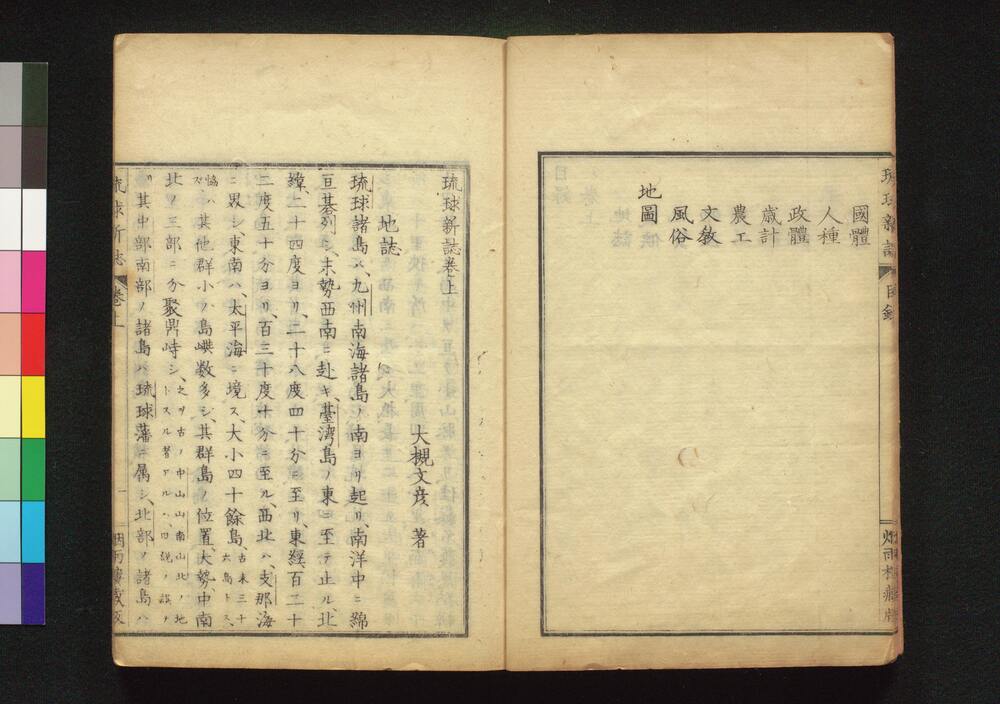 國體
人種
政體
歳計
農工
文教
風俗
地圖
琉球新誌卷上
大槻文彦 著
地誌
琉球諸島ハ、九州南海諸島ノ南ヨリ起リ、南洋中ニ綿
亘碁列シ、末勢西南ニ赴キ、臺湾島ノ東ニ至テ止ル、北
緯、二十四度ヨリ、二十八度四十分ニ至リ、東經、百二十
二度五十分ヨリ、百三十度十分ニ至ル、西北ハ、支那海
ニ界シ、東南ハ、太平海ニ境ス、大小四十餘島、古来三十六島トス、
恊ハズ、其他群小ノ島嶼数多シ、其群島ノ位置、大勢、中南
北ノ三部ニ分聚鼎峙シ、之ヲ古ノ中山山南山北ノ地トスル者アルハ、四説ノ誤ノ
其中部南部ノ諸島ハ、琉球藩ニ属シ、北部ノ諸島ハ
琉球新誌 目録
琉球新誌 卷上 一